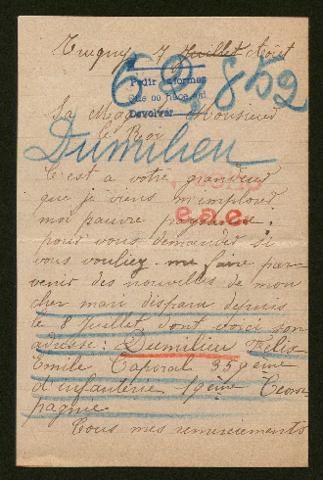 7 Juillet Août
62,852
Pedir informes
Devolver
Sa Majesté Monsieur
le Roi
Dumilieu
C'est a votre grandeur
que je viens m'implorer
moi pauvre paysanne
e.a.e.
pour vous demander si
vous vouliez me faire par
venir des nouvelles de mon
cher mari disparu depuis
le 8 juillet dont voici son
adresse: Dumilieu Félix
Emile Caporal 359ème
d'infanterie 19ème Com
pagnie
Tous mes remerciements